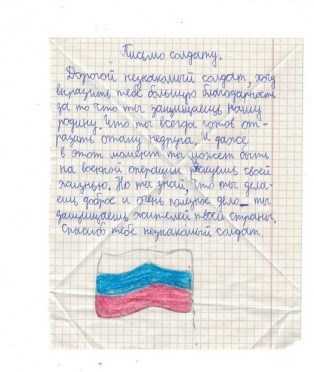 Письмо солдату.
Дорогой незнакомый солдат, хочу
выразить тебе большую благодарность
за то что ты защищаешь нашу
родину. Что ты всегда готов от-
разить атаку недруга. И даже
в этот момент ты может быть
на военной операции рискуешь своей
жизнью. Но ты знай, что ты дела-
ешь доброе и очень полезное дело_ ты
защищаешь жителей твоей страны.
Спасибо тебе незнакомый солдат.